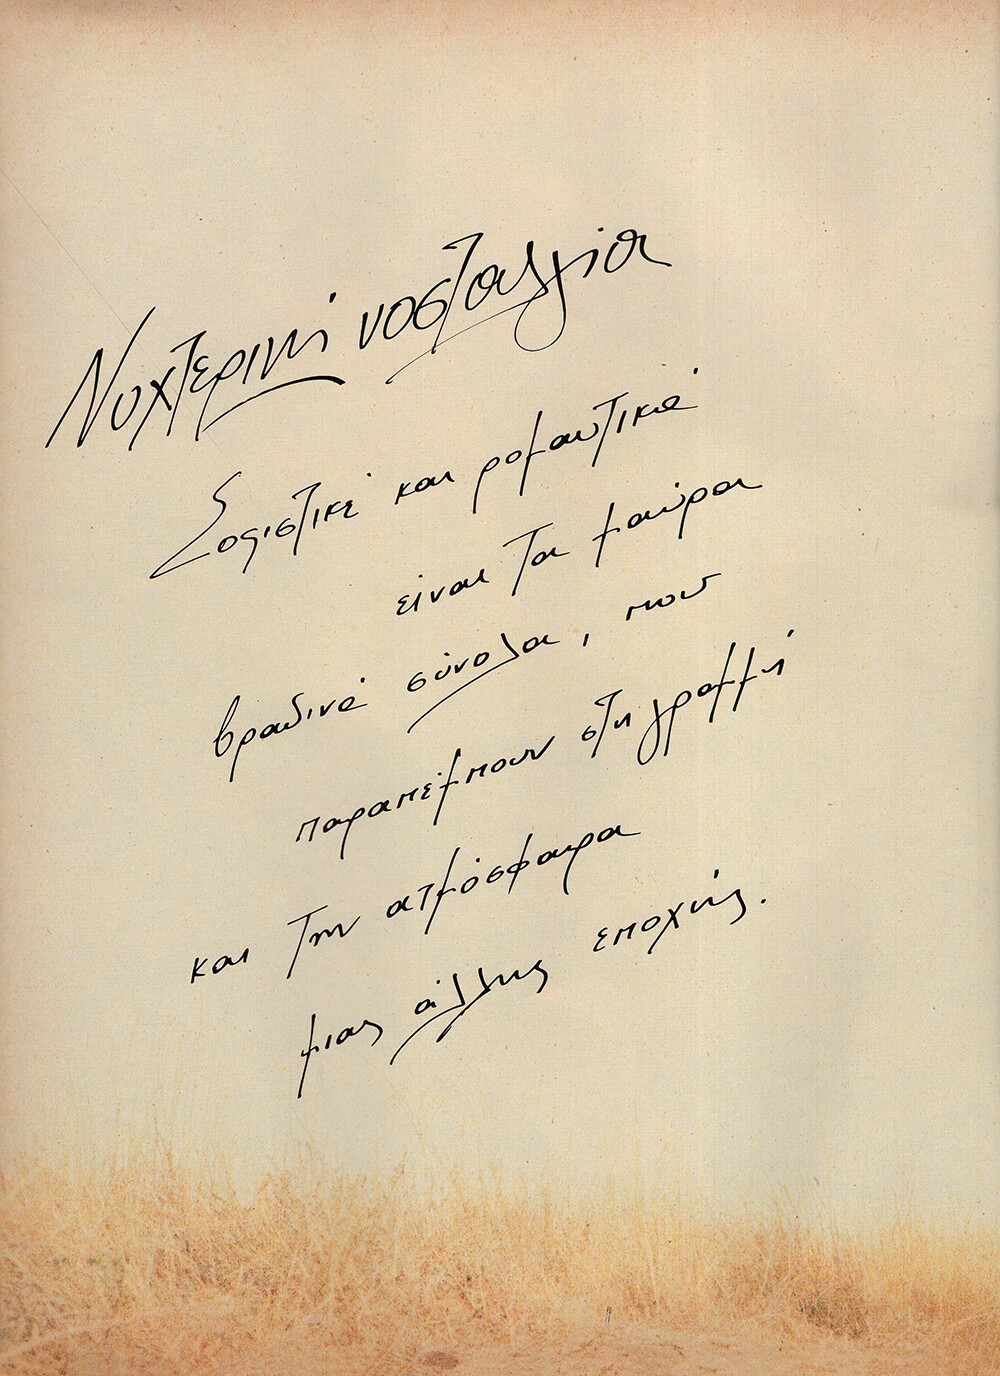 Νυχτερινή νοσταλγία
Σοφιστικέ και ρομαντικά
είναι τα μαύρα
βραδινά σύνολα, που
παραπέμπουν στη γραμμή
και την ατμόσφαιρα
μιας άλλης εποχής.